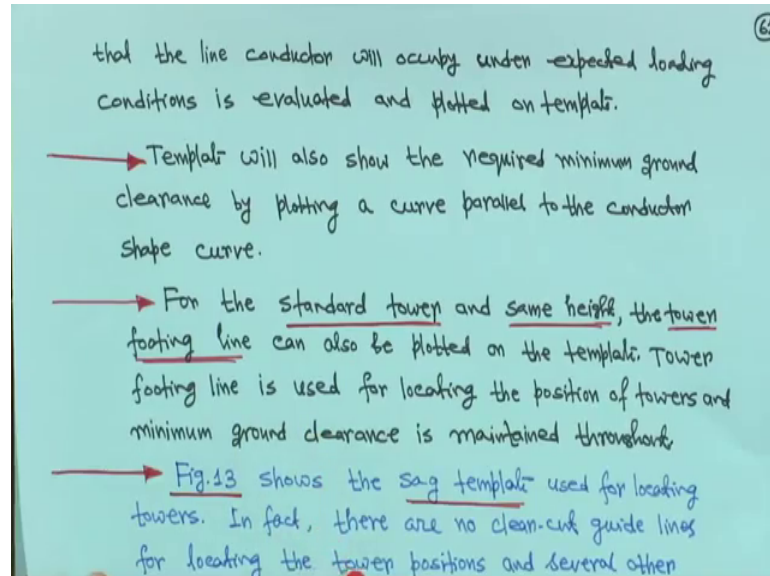 that the line conductor will occupy under expected loading
conditions is evaluated and plotted on template.
Template will also show the required minimum ground
clearance by plotting a curve parallel to the conductor
shape curve.
For the standard tower and same height, the tower
footing line can also be plotted on the template. Tower
footing line is used for locating the position of towers and
minimum ground clearance is maintained throughout
Fig.13 shows the sag template used for locating
towers. In fact, there are no clean-cut guide lines
for locating the tower positions and several other